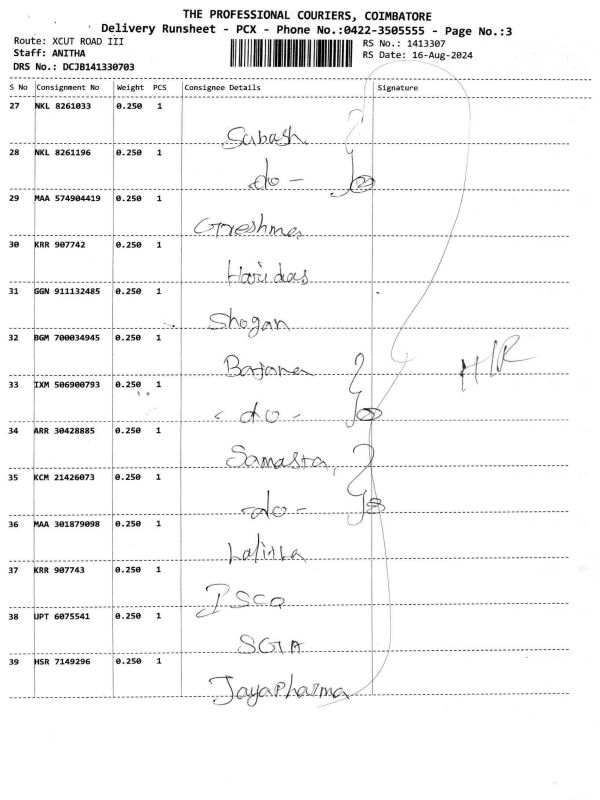 THE PROFESSIONAL COURIERS, COIMBATORE
Delivery Runsheet - PCX - Phone No.:0422-3505555 - Page No.:3
Route: XCUT ROAD III
RS No.: 1413307
Staff: ANITHA
RS Date: 16-Aug-2024
DRS No.: DCJB141330703
S No Consignment No Weight PCS Consignee Details Signature
27 NKL 8261033 0.250 1
Subash
28 NKL 8261196 0.250 1
do -
29 MAA 574904419 0.250 1
Greshma
30 KRR 907742 0.250 1
Haridas
31 GGN 911132485 0.250 1
Shogan
32 BGM 700034945 0.250 1
33 IXM 506900793 0.250 1
- do -
34 ARR 30428885 0.250 1
Samasta
35 KCM 21426073 0.250 1
- do -
36 MAA 301879098 0.250 1
Lalitha
37 KRR 907743 0.250 1
38 UPT 6075541 0.250 1
39 HSR 7149296 0.250 1
Jayapharma